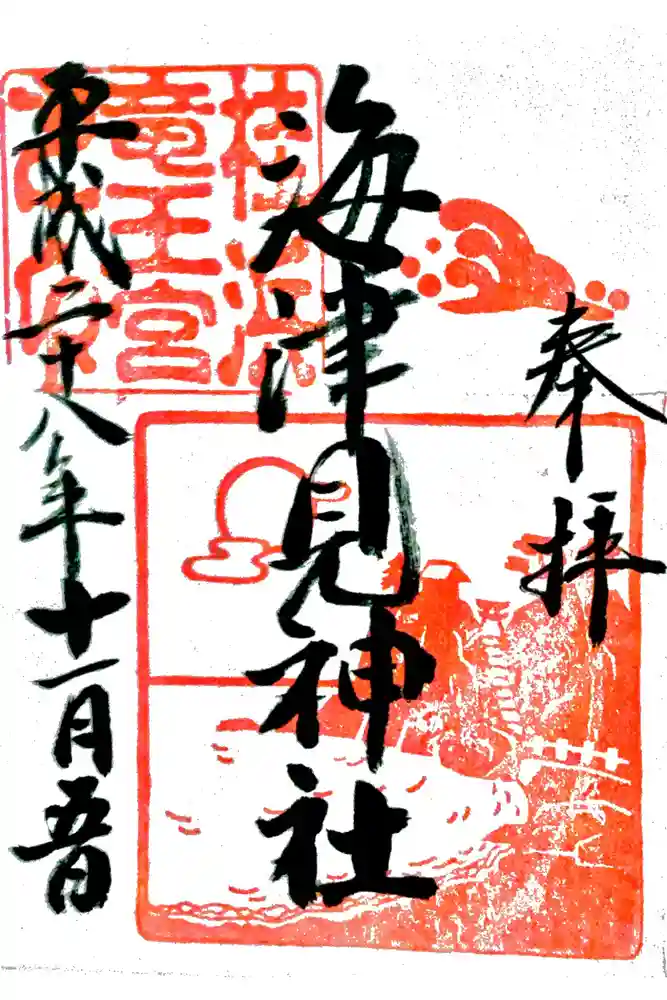 奉拝
海津見神社
平成二十八年十一月五日
桂浜
竜王宮